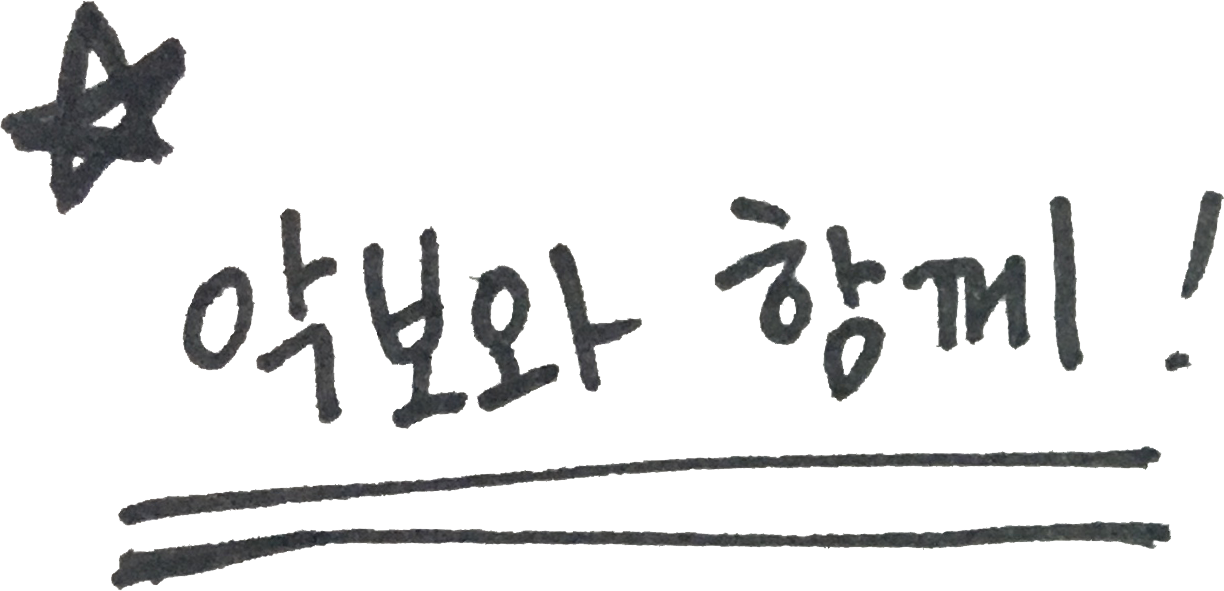 악보와 함께!